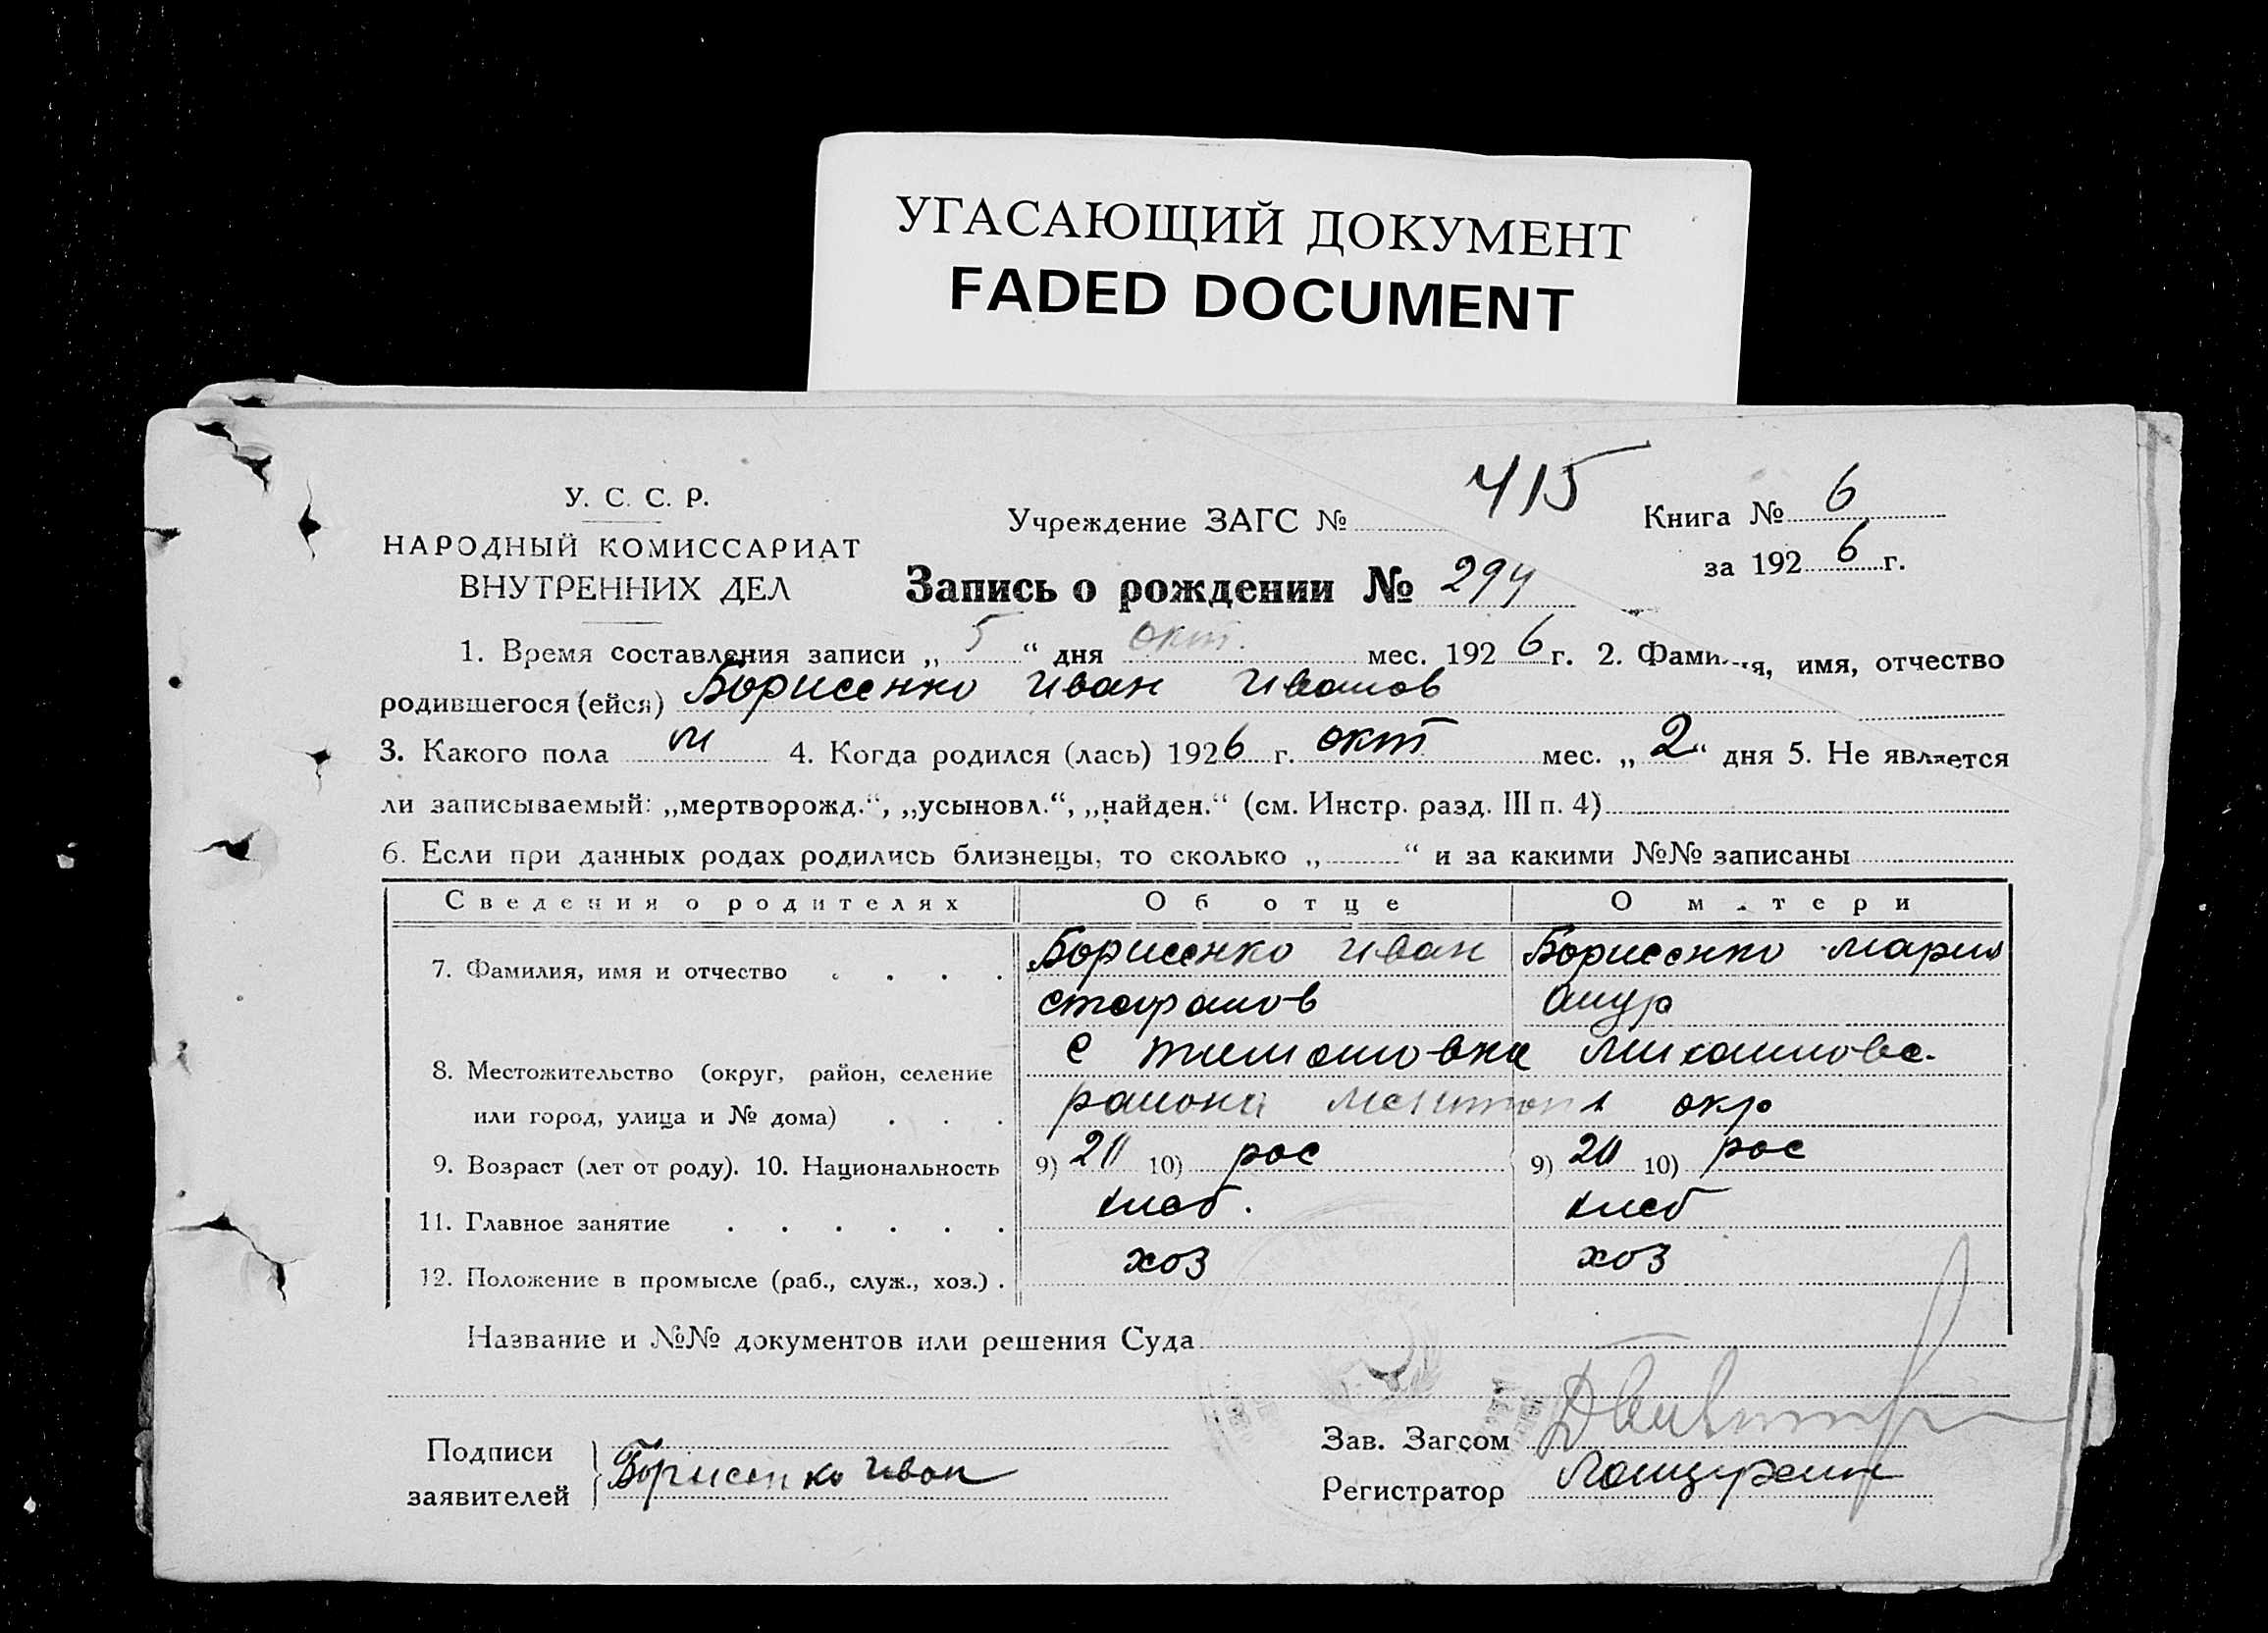 УГАСАЮЩИЙ ДОКУМЕНТ
FADED DOCUMENT
У. С. С. Р.
НАРОДНЫЙ КОМИССАРИАТ
ВНУТРЕННИХ ДЕЛ
Учреждение ЗАГС № 415
Книга № 6
за 1926 г.
Запись о рождении № 294
1. Время составления записи „5“ дня окт. мес. 1926 г. 2. Фамилия, имя, отчество
родившегося (ейся) Борисенко Иван Иванов
3. Какого пола м 4. Когда родился (лась) 1926 г. окт мес. „2“ дня 5. Не является
ли записываемый: „мертворожд.“, „усыновл.“, „найден.“ (см. Инстр. разд. III п. 4)
6. Если при данных родах родились близнецы, то сколько „ “ и за какими №№ записаны
Сведения о родителях Об отце О матери
7. Фамилия, имя и отчество . . . . Борисенко Иван Борисенко Мария
8. Местожительство (округ, район, селение с Тимошовка Михайловс.
или город, улица и № дома) . . . района окр
9. Возраст (лет от роду). 10. Национальность 9) 20 10) рос 9) 20 10) рос
11. Главное занятие . . . . . . хлеб. хлеб
12. Положение в промысле (раб., служ., хоз.) . хоз хоз
Название и №№ документов или решения Суда
Подписи
заявителей Борисенко Иван
Зав. Загсом
Регистратор